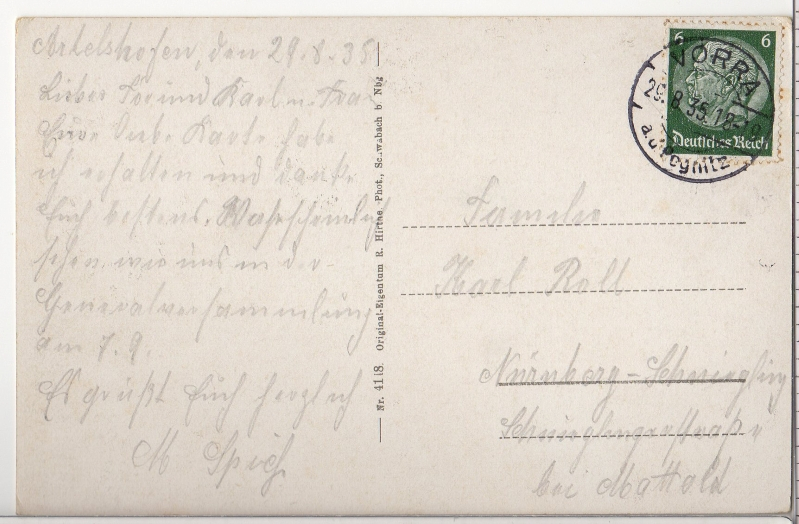 Artelshofen, den 29.8.35
Lieber Freund Karl u. Frau
Eure liebe Karte habe
ich erhalten und danke
Euch bestens. Wahrscheinlich
sehen wir uns in der
Generalversammlung
am 7.9.
Es grüßt Euch herzlich
M Spieß
Nr. 4118. Original-Eigentum R. Phot., Schwabach b Nbg
6 6
VORRA
29.8.35.
a.d.Pegnitz
Deutsches Reich
Familie
Karl Roll
Nürnberg-Schniegling
Schnieglingerstraße
bei